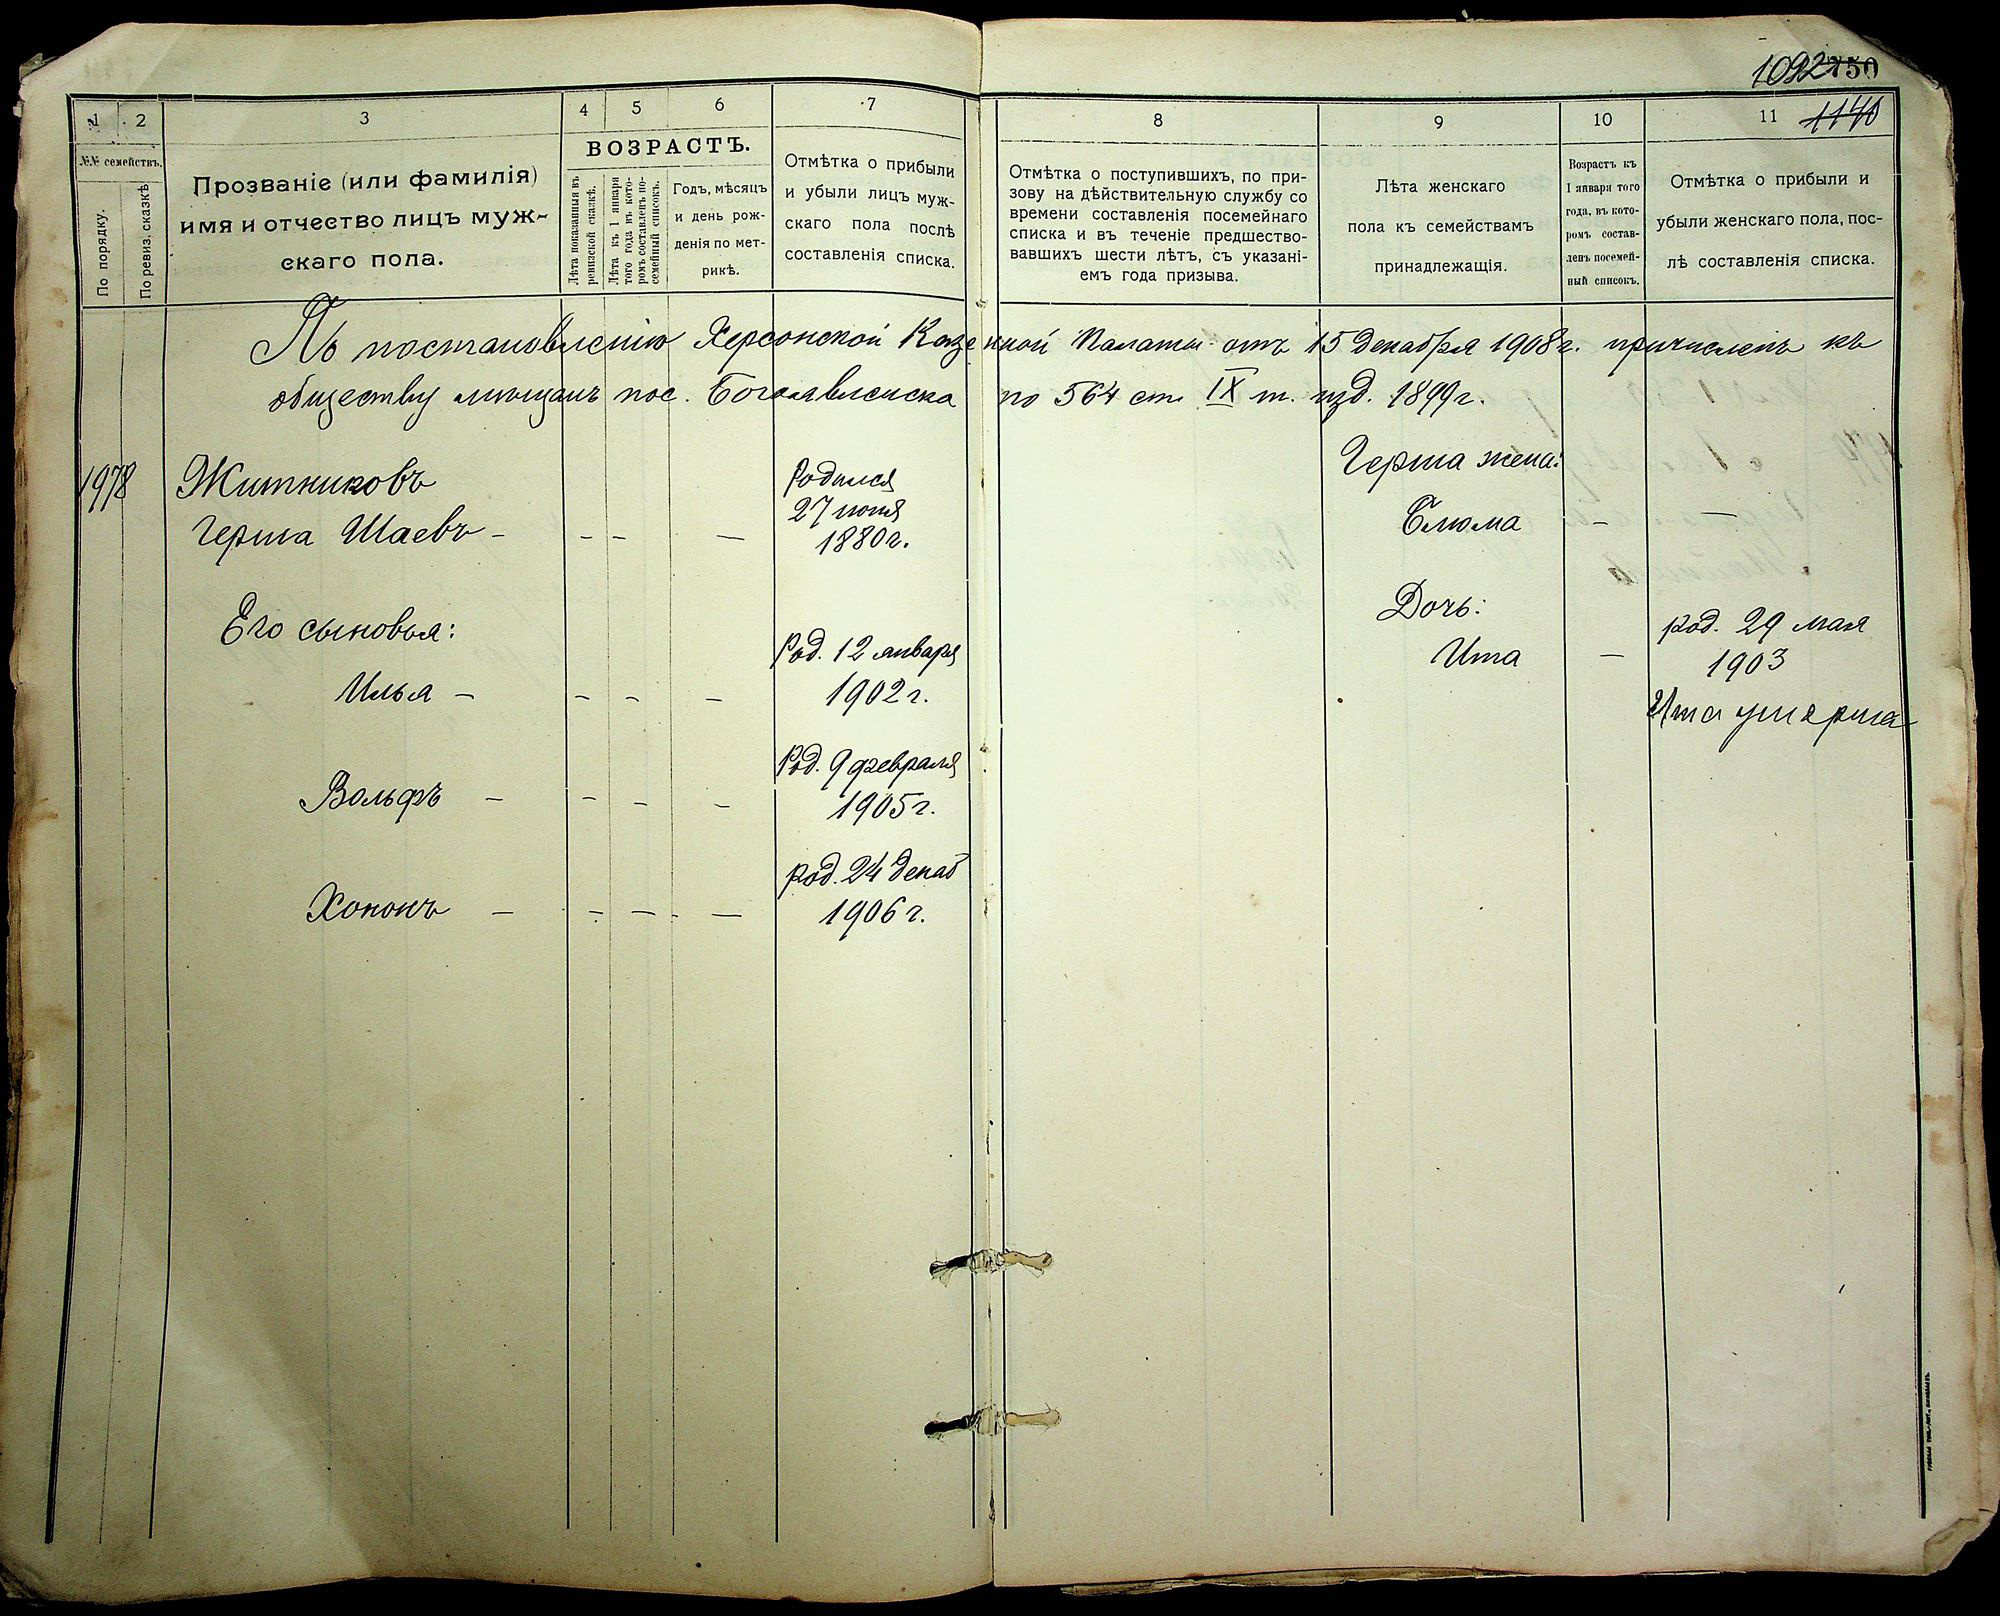 1092 750
1 2 3 4 5 6 7 8 9 10 11 1140
№№ семействъ.
По порядку.
По ревиз. сказкѣ
Прозваніе (или фамилія)
имя и отчество лицъ муж-
скаго пола.
ВОЗРАСТЪ.
Лѣта показанныя въ
ревизской сказкѣ.
Лѣта къ 1 января
того года въ кото-
ромъ составленъ по-
семейный списокъ.
Годъ, мѣсяцъ
и день рож-
денія по мет-
рикѣ.
Отмѣтка о прибыли
и убыли лицъ муж-
скаго пола послѣ
составленія списка.
Отмѣтка о поступившихъ, по при-
зову на дѣйствительную службу со
времени составленія посемейнаго
списка и въ теченіе предшество-
вавшихъ шести лѣтъ, съ указані-
емъ года призыва.
Лѣта женскаго
пола къ семействамъ
принадлежащія.
Возрастъ къ
1 января того
года, въ кото-
ромъ состав-
ленъ посемей-
ный списокъ.
Отмѣтка о прибыли и
убыли женскаго пола, пос-
лѣ составленія списка.
По постановленію Херсонской Казенной Палаты отъ 15 Декабря 1908 г. причисленъ къ
обществу мѣщанъ пос. Богоявленска по 564 ст. IX т. изд. 1899 г.
1978 Житниковъ
Герша Шаевъ - - - —
Родился
27 іюня
1880 г.
Герша жена:
Слюма - —
Его сыновья:
Илья - - - -
Род. 12 января
1902 г.
Дочь:
Ита —
род. 29 мая
1903
Ита умерла
Вольфъ - - - -
Род. 9 февраля
1905 г.
Хононъ - - - —
род. 24 декаб
1906 г.